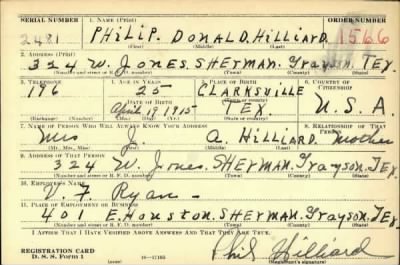 SERIAL NUMBER 1. NAME (Print) ORDER NUMBER
2481 PHILIP. DONALD. HILLIARD 1566
(First) (Middle) (Last)
2. ADDRESS (Print)
324 W. JONES. SHERMAN. Grayson. TEX.
(Number and street or R. F. D. number) (Town) (County) (State)
3. TELEPHONE 4. AGE IN YEARS 5. PLACE OF BIRTH 6. COUNTRY OF CITIZENSHIP
196 25 CLARKSVILLE
DATE OF BIRTH (Town or county)
April 9 1915 TEX U.S.A.
(Exchange) (Number) (Mo.) (Day) (Yr.) (State or country)
7. NAME OF PERSON WHO WILL ALWAYS KNOW YOUR ADDRESS 8. RELATIONSHIP OF THAT PERSON
Mrs J. A. HILLIARD. mother
(Mr., Mrs., Miss) (First) (Middle) (Last)
9. ADDRESS OF THAT PERSON
324 W. Jones. SHERMAN. Grayson. TEX.
(Number and street or R. F. D. number) (Town) (County) (State)
10. EMPLOYER'S NAME
V. F. Ryan
11. PLACE OF EMPLOYMENT OR BUSINESS
401 E. Houston. SHERMAN. Grayson. TEX
(Number and street or R. F. D. number) (Town) (County) (State)
I AFFIRM THAT I HAVE VERIFIED ABOVE ANSWERS AND THAT THEY ARE TRUE.
REGISTRATION CARD
D. S. S. Form 1 Phil Hilliard
(Registrant's signature)